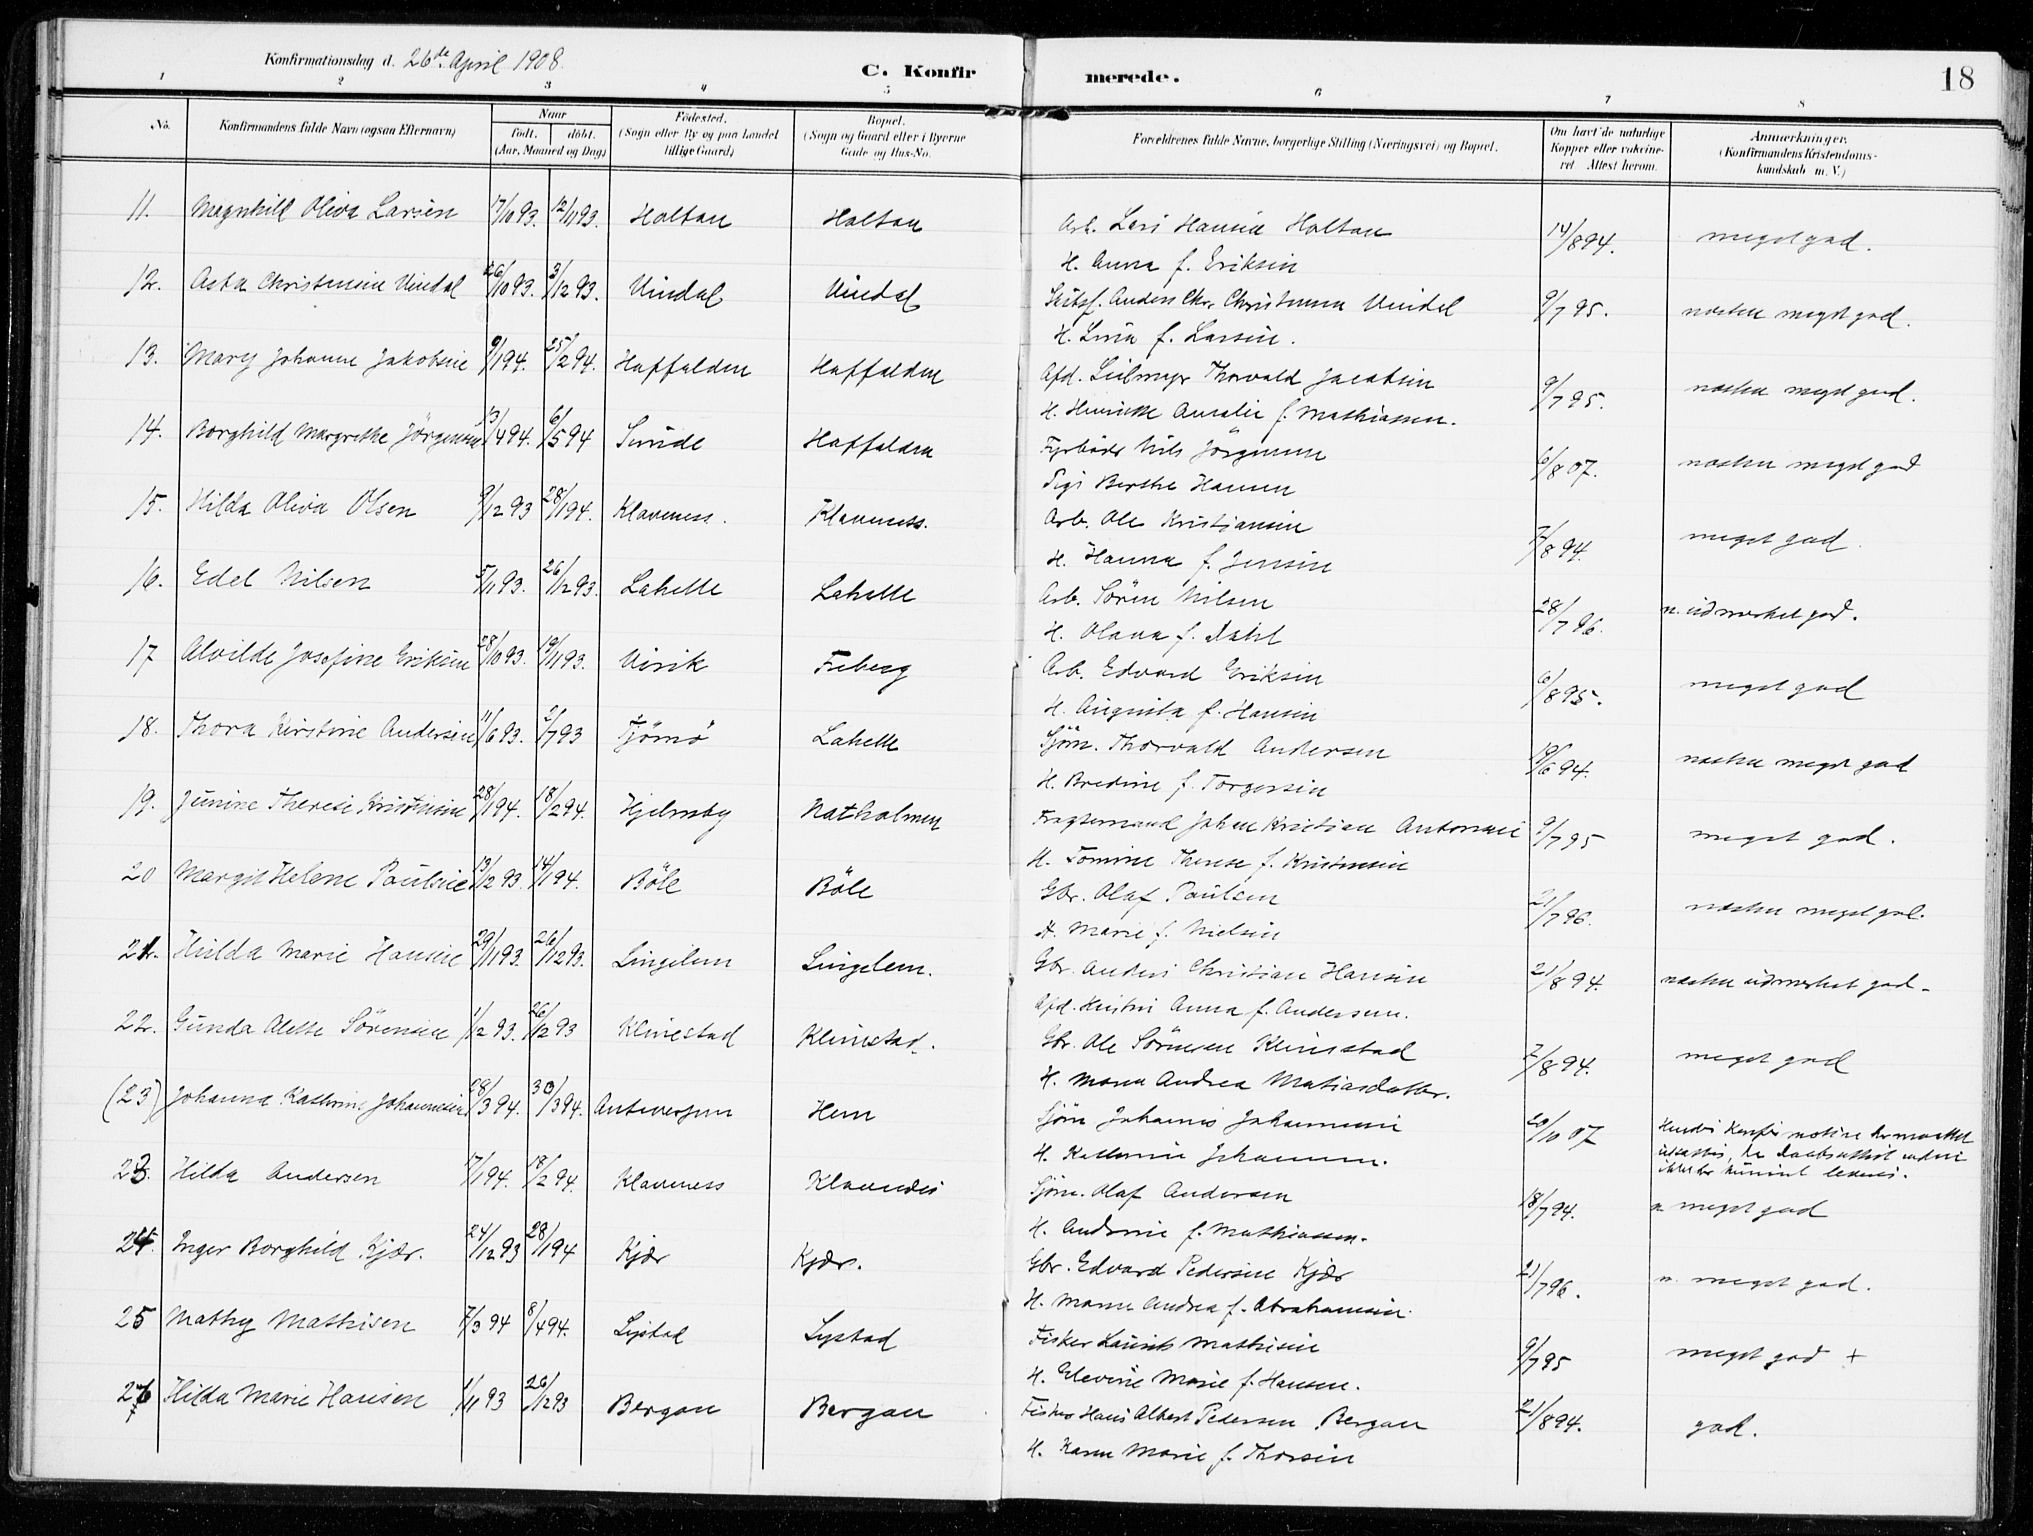 Konfirmationsdag d. 26de April 1908.
C. Konfirmerede.
18
1 2 3 4 5 6 7 8
No.
Konfirmandens fulde Navn (ogsaa Efternavn)
Naar
født. døbt.
(Aar, Maaned og Dag)
Fødested.
(Sogn eller By og paa Landet
tillige Gaard)
Bopæl.
(Sogn og Gaard eller i Byerne
Gade og Hus-No.
Forældrenes fulde Navne, borgerlige Stilling (Næringsvei) og Bopæl.
Om havt de naturlige
Kopper eller vaksine-
ret Attest herom.
Anmærkninger.
(Konfirmandens Kristendoms-
kundskab m. V.)
11. Magnhild Oliva Larsen 17/10 93. 12/11 93. Holtan Holtan Arb. Lars Hansen Holtan 14/8 94. meget god.
H. Anna f. Eriksen
12. Asta Christensen Vindal 26/10 93. 3/12 93. Vindal Vindal Anders Chr. Christensen Vindal 9/7 95. næsten meget god.
H. Lina f. Larsen.
13. Mary Johanne Jakobsen 9/1 94. 25/2 94. Haffalden Haffalden Afd. Thorvald Jacobsen 9/7 95. næsten meget god.
H. Henriette Amalie f. Mathiassen.
14. Borghild Margrethe Jörgensen 13/4 94. 6/5 94 Sunde Haffalden Fyrböder Nils Jörgensen 6/8 07. næsten meget god
Pige Berthe Hansen
15. Hilda Oliva Olsen 9/12 93 28/1 94. Klavness. Klavness. Arb. Ole Kristiansen 7/8 94. meget god.
H. Hanna f. Jensen
16. Edel Nilsen 5/11 93. 26/12 93. Lahelle Lahelle Arb. Sören Nilsen 28/7 96. n. udmerket god.
H. Olava f. Dahl
17 Alvilde Josefine Eriksen 28/10 93. 19/11 93. Virik Freberg Arb. Edvard Eriksen 6/8 95. meget god
H. Augusta f. Hansen
18. Thora Kirstine Andersen 11/6 93. 2/7 93 Tjömö Lahelle Sjöm. Thorvald Andersen 19/6 94. næsten meget god
H. Bredine f. Torgersen
19. Junine Therese Kristensen 28/1 94. 18/2 94. Hjelmsby Natholmen Fragtemand Johan Kristian Antonsen 9/7 95 meget god.
H. Tomine Therese f. Kristensen
20 Margit Helene Paulsen 13/12 93. 14/1 94. Böle Böle Gbr. Olaf Paulsen 21/7 96. næsten meget god.
H. Marie f. Nielsen
21. Hulda Marie Hansen 29/11 93. 26/12 93. Lingelem Lingelem. Gbr. Anders Christian Hansen 21/8 94. næsten udmerket god.
Afd. Hustru Anna f. Andersen.
22. Gunda Alette Sörensen 1/12 93. 26/12 93 Klinestad Klinestad. Gbr. Ole Sörensen Klinestad 7/8 94. meget god
H. Maren Andrea Matiasdatter.
(23) Johanna Kathrine Johannesen 28/3 94. 30/3 94. Antwerpen Hem Sjöm Johannes Johannesen 20/10 07 Hendes Konf.
H. Kathrine Johannesen.
23. Hilda Andersen 17/1 94. 18/2 94. Klavness Klavness Sjöm. Olaf Andersen 18/7 94. n. meget god
H. Andrine f. Mathiassen.
24. Inger Borghild Kjær. 24/12 93 28/1 94 Kjær Kjær. Gbr. Edvard Pedersen Kjær 21/7 96. n. meget god.
H. Maren Andrea f. Abrahamsen.
25 Mathy Mathisen 7/3 94 8/4 94. Lystad Lystad Fisker Laurits Mathisen 9/7 95 meget god +
H. Elevine Marie f. Hansen.
26 Hilda Marie Hansen 1/11 93 26/12 93 Bergan Bergan Fisker Hans Albert Pedersen Bergan 21/8 94. god.
H. Karen Marie f. Thorsen